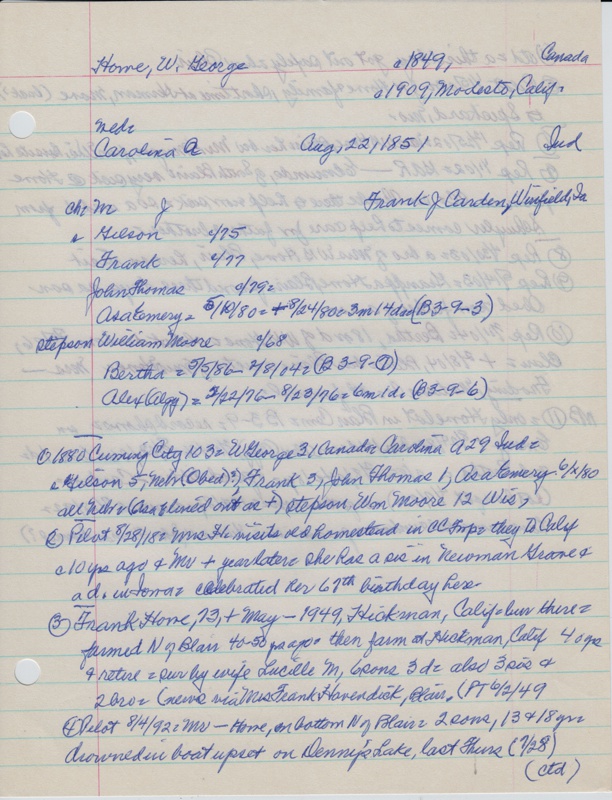 Horne, W. George c1849, Canada
c1909, Modesto, Calif.
Neb=
Carolina A Aug, 22, 1851 Ind
ch= M J Frank J Carden, Winfield, Ia
Gilson c/75
Frank c/77
John Thomas c/79=
Asa Emery = 5/10/80= 8/24/80=3m14da (B3-9-3)
stepson William Moore c/68
Bertha = 5/5/86- 2/8/04=(B3-9-①)
Alex (Algy) = 2/22/76- 8/23/76=6m1d. (B3-9-6)
① 1880 Cuming City 103= W George 31 Canada= Carolina A 29 Ind=
Gilson 5, Neb (Obed?), Frank 3, John Thomas 1, Asa Emery
all Neb= (Asa lined out as +) stepson Wm Moore 12 Wis,
② Pilot 8/28/18= Mrs H= visits old homestead in CC Tmp= they to Calif
c 10 yrs ago & Mr + year later= she has a sis in Newman Grove &
a d. in Iowa= celebrated her 67th birthday here
③ Frank Horne, 73, + May - 1949, Hickman, Calif= bur there=
farmed N of Blair 40-50 yrs ago= then farm at Hickman, Calif
& retire = sur by wife Lucille M, 6 sons 3 d= also 3 sis &
2 bro= (news via Mrs Frank Havendick, Blair. (PT 6/2/49
④ Pilot 8/4/92= Mr - Horne, on bottom N of Blair= 2 sons, 13 & 18 yrs
drowned in boat upset on Denny's Lake, last Thurs (7/28)
(ctd)